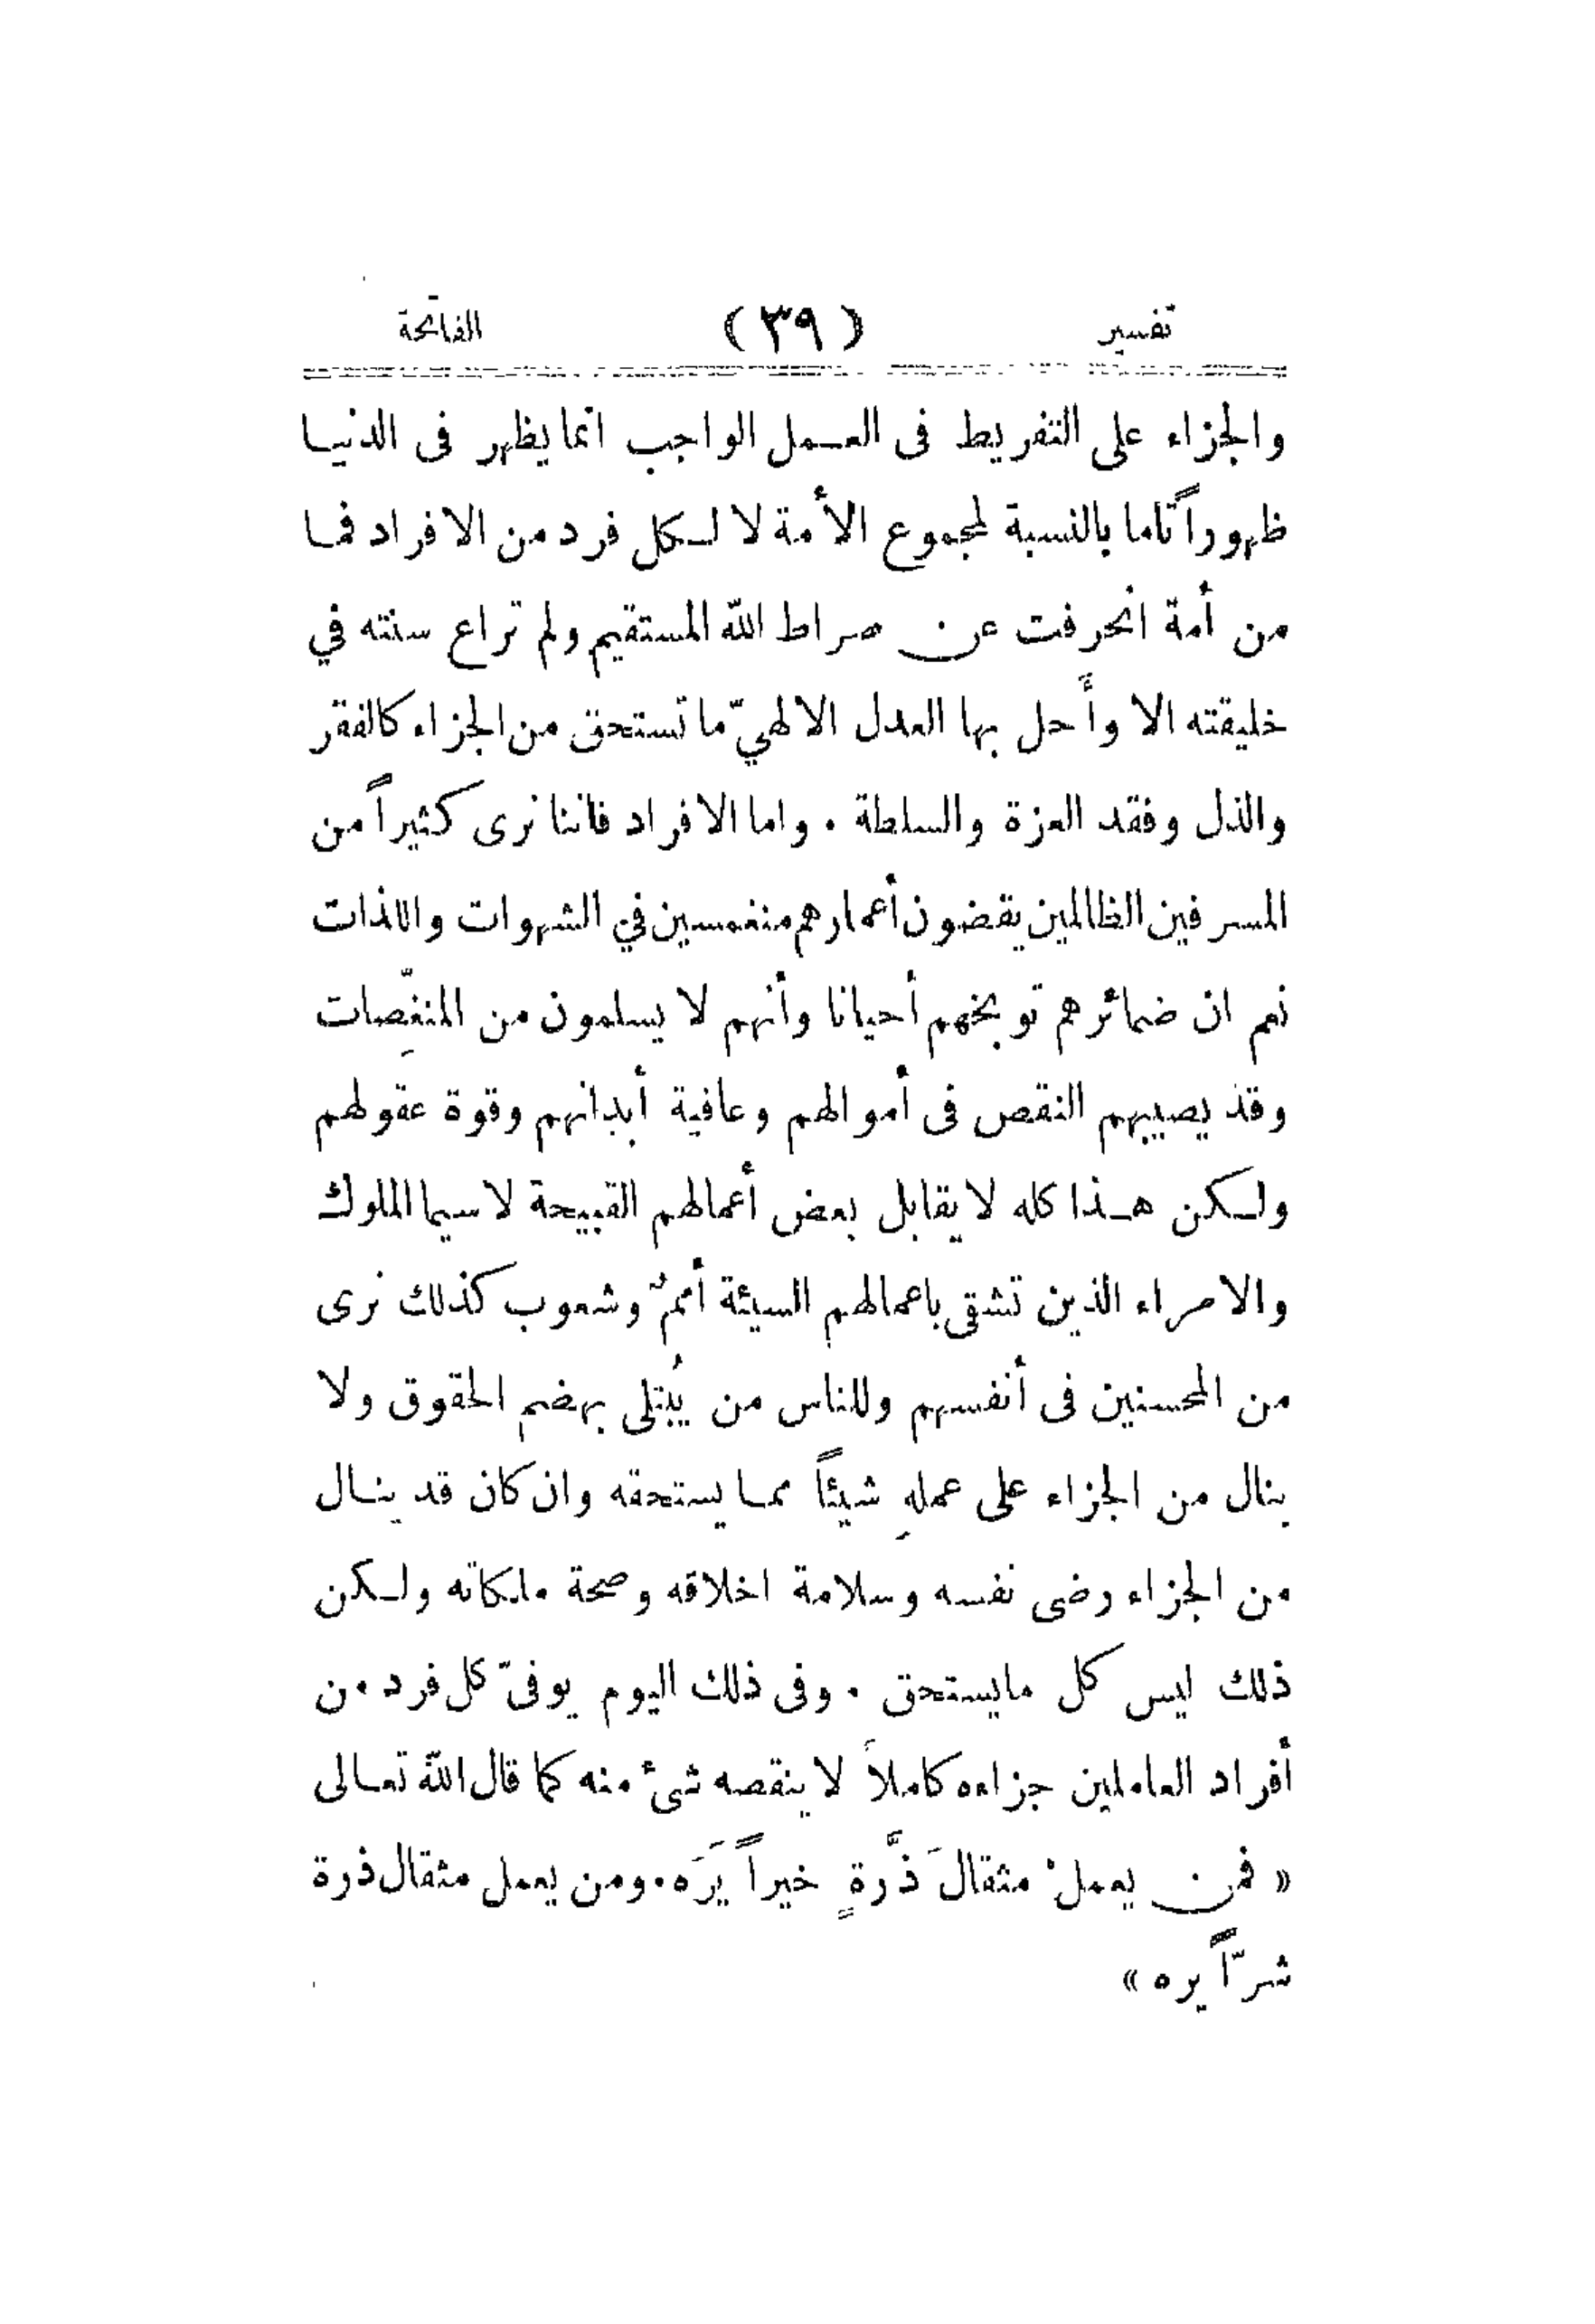 تفسير (٣٩) الفاتحة
والجزاء على التفريط فى العمل الواجب انما يظهر فى الدنيا
ظهوراً تاما بالنسبة لمجموع الأمة لا لكل فرد من الافراد فما
من أمة انحرفت عن صراط الله المستقيم ولم تراع سنته في
خليقته الا وأحل بها العدل الالهيّ ما تستحق من الجزاء كالفقر
والذل وفقد العزة والسلطة . واما الافراد فاننا نرى كثيراً من
المسرفين الظالمين يقضون أعمارهم منغمسين في الشهوات واللذات
نعم ان ضمائرهم توبخهم أحيانا وأنهم لا يسلمون من المنغِّصات
وقد يصيبهم النقص فى أموالهم وعافية أبدانهم وقوة عقولهم
ولكن هذا كله لا يقابل بعض أعمالهم القبيحة لا سيما الملوك
والامراء الذين تشقى باعمالهم السيئة أممٌ وشعوب كذلك نرى
من المحسنين فى أنفسهم وللناس من يُبتلى بهضم الحقوق ولا
ينال من الجزاء على عملهِ شيئاً مما يستحقه وان كان قد ينال
من الجزاء رضى نفسه وسلامة اخلاقه وصحة ملكاته ولكن
ذلك ليس كل ما يستحق . وفى ذلك اليوم يوفىّ كل فرد من
أفراد العاملين جزاءه كاملاً لا ينقصه شئ منه كما قال الله تعالى
« فمن يعملْ مثقالَ ذَّرةٍ خيراً يَرَه . ومن يعمل مثقال ذرة
شرّاً يره »